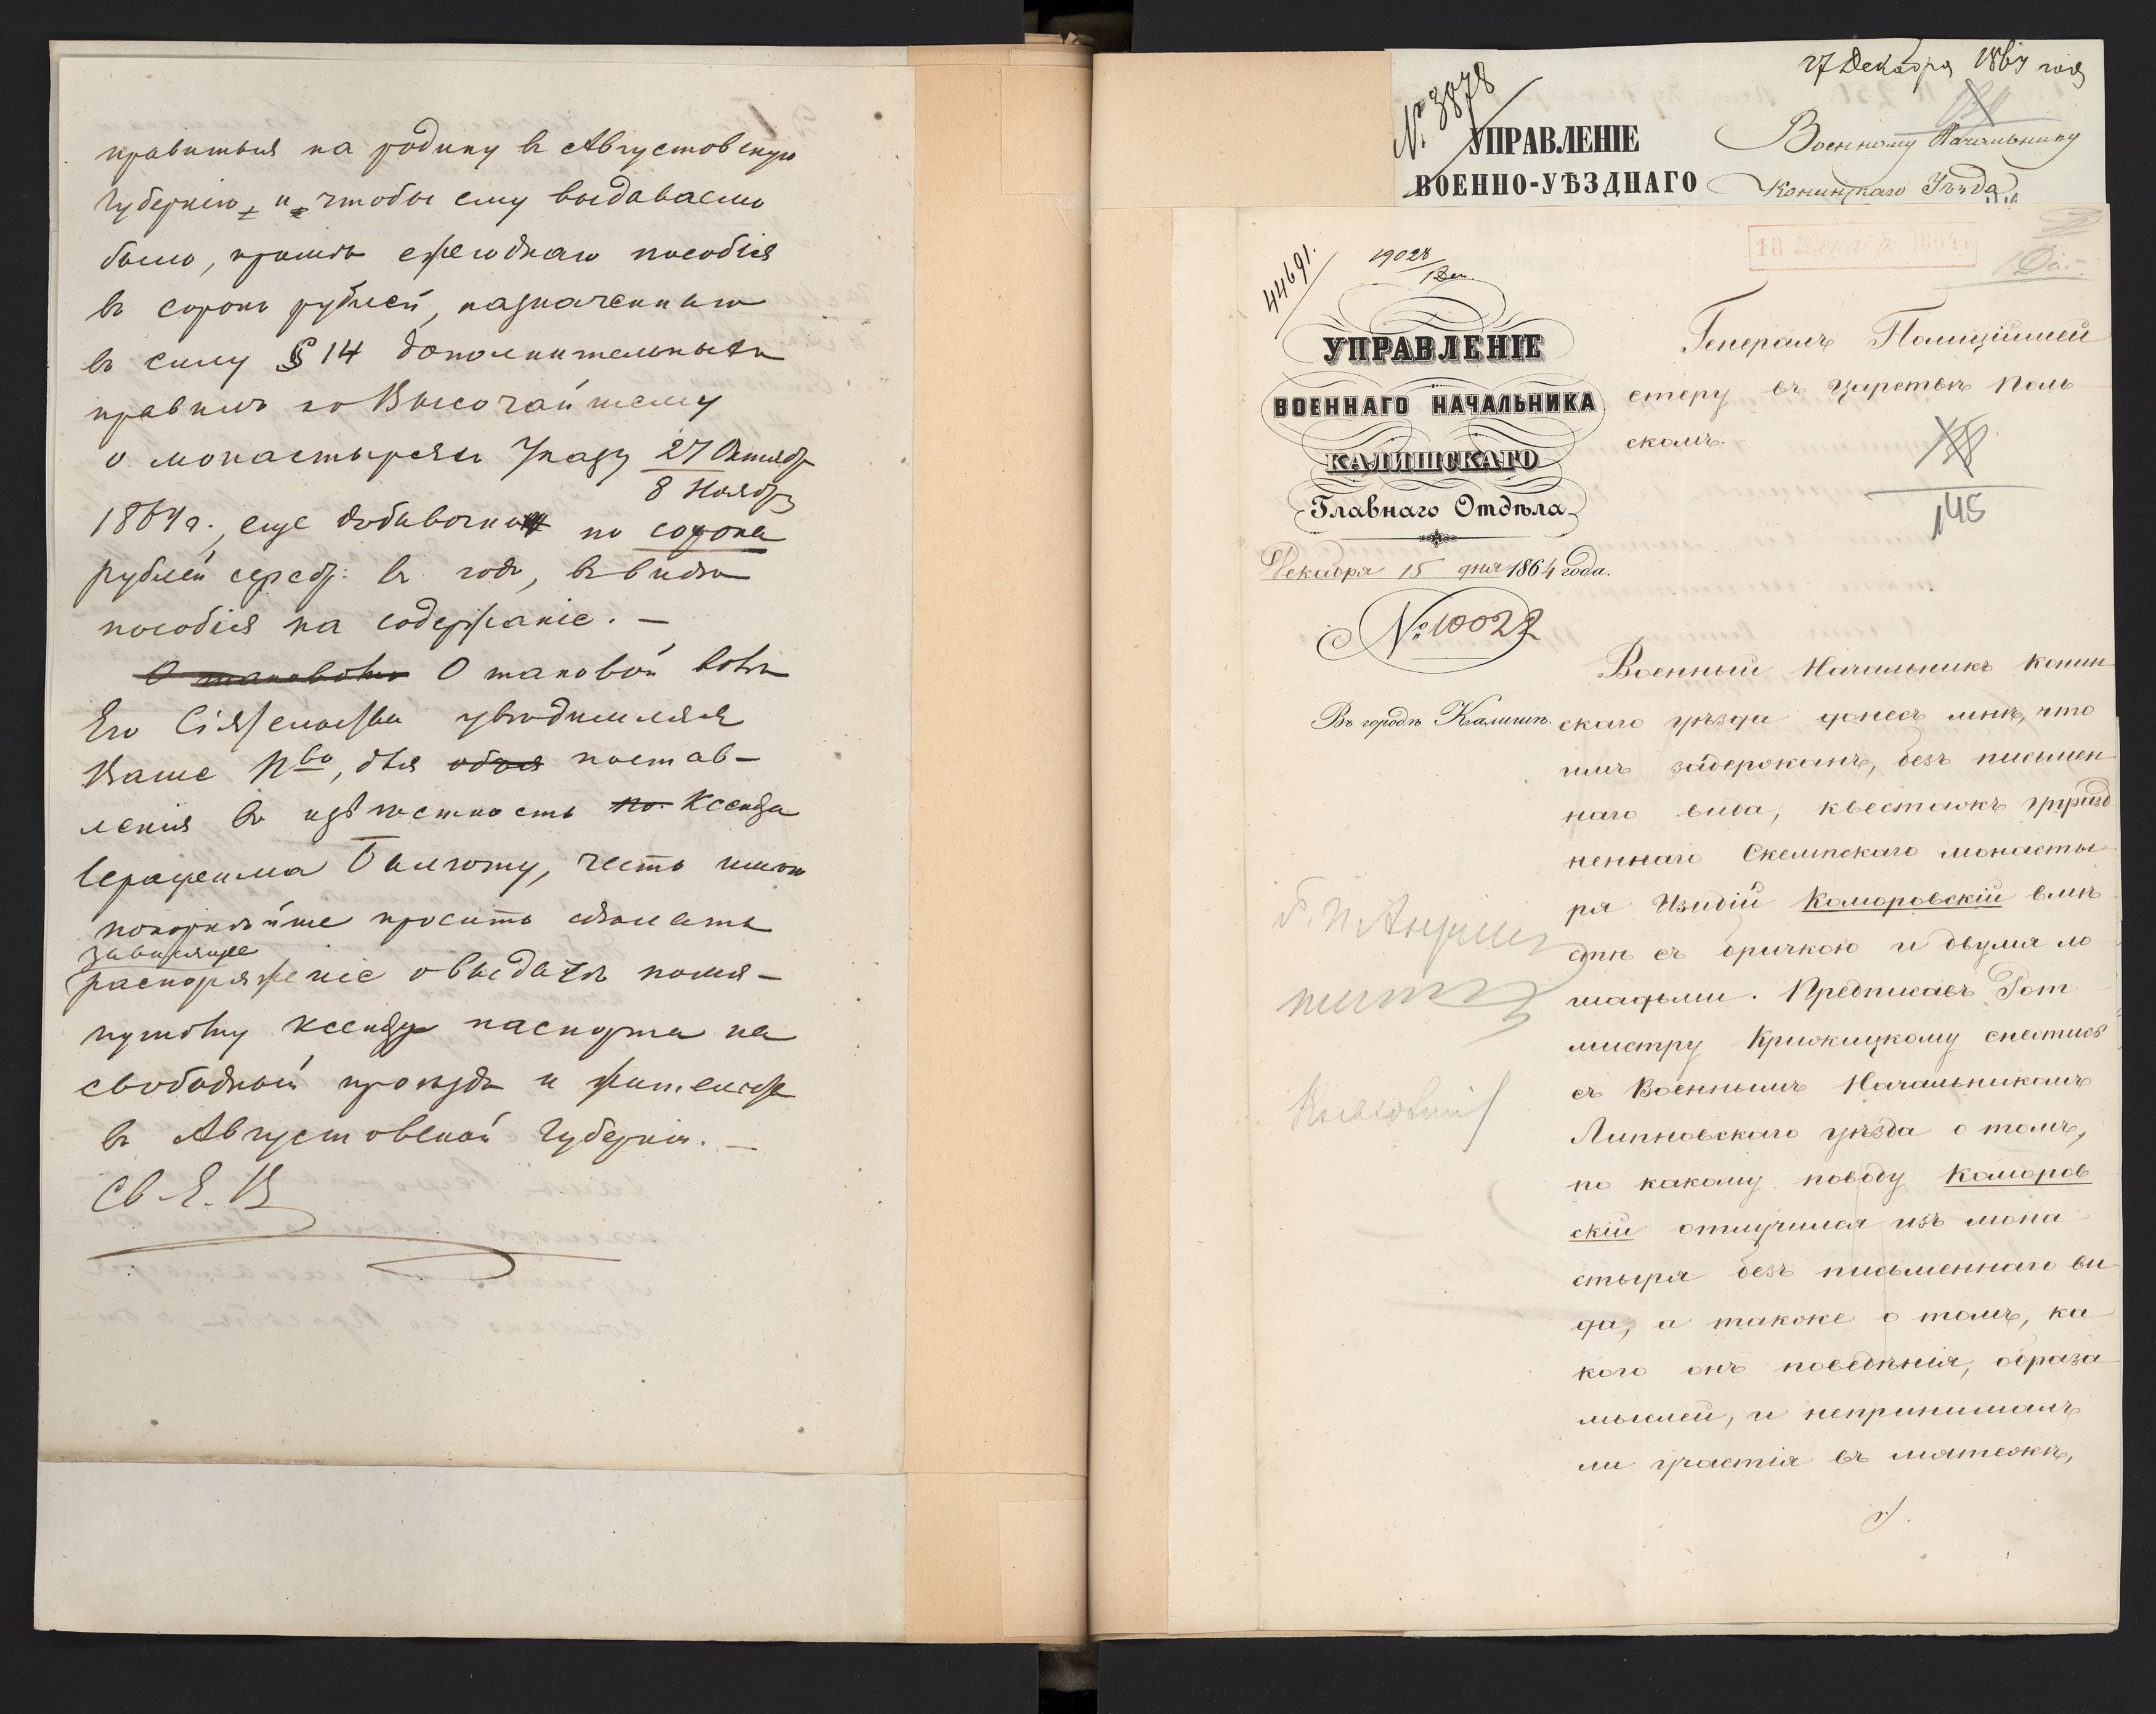 правиться на родину въ Августовскую
Губернію, и чтобы ему выдаваемо
было, кромѣ ежегоднаго пособія
въ сорокъ рублей, назначеннаго
въ силу § 14 дополнительныхъ
правилъ къ Высочайшему
о монастыряхъ Указу 27 Октябр
8 Ноябр
1864 г., еще добавочныхъ по сорока
рублей серебр: въ годъ, въ видѣ
пособія на содержаніе. —
О таковой О таковой волѣ
Его Сіятельства увѣдомляя
Ваше Пво, для поставленія
ленія въ извѣстность Ксендза
Серафима Бильготу, честь имѣю
покорнѣйше просить сдѣлать
зависящее
распоряженіе о выдачѣ помя-
путому ксендзу паспорта на
свободный проѣздъ и жительство
въ Августовской Губерніи. —
Св. Е. В
27 Декабря 1864 года
№ 3878
УПРАВЛЕНІЕ
ВОЕННО-УѢЗДНАГО
Военному Начальнику
Конинскаго Уѣзда
44691.
19028
1 Деп.
18 Декабря 1864
УПРАВЛЕНІЕ
ВОЕННАГО НАЧАЛЬНИКА
КАЛИШСКАГО
Главнаго Отдѣла
Декабря 15 дня 1864 года.
№ 10022
Въ городѣ Калишѣ.
Генералъ Полиціймей
стеру въ Царствѣ Поль
скомъ.
145
Военный Начальникъ Конин
скаго уѣзда донесъ мнѣ, что
имъ задержанъ, безъ письмен
наго вида, квестажъ упразд
неннаго Скемпскаго монасты
ря Изидій Коморовскій вмѣ
стѣ съ бричкою и двумя ло
шадьми. Предписавъ Рот
мистру Крижицкому снестись
съ Военнымъ Начальникомъ
Липновскаго уѣзда о томъ,
по какому поводу Коморов
скій отлучился изъ мона
стыря безъ письменнаго ви
да, а также о томъ, ка
кого онъ поведѣнія, образа
мыслей, и непринималъ
ли участія въ мятежѣ,